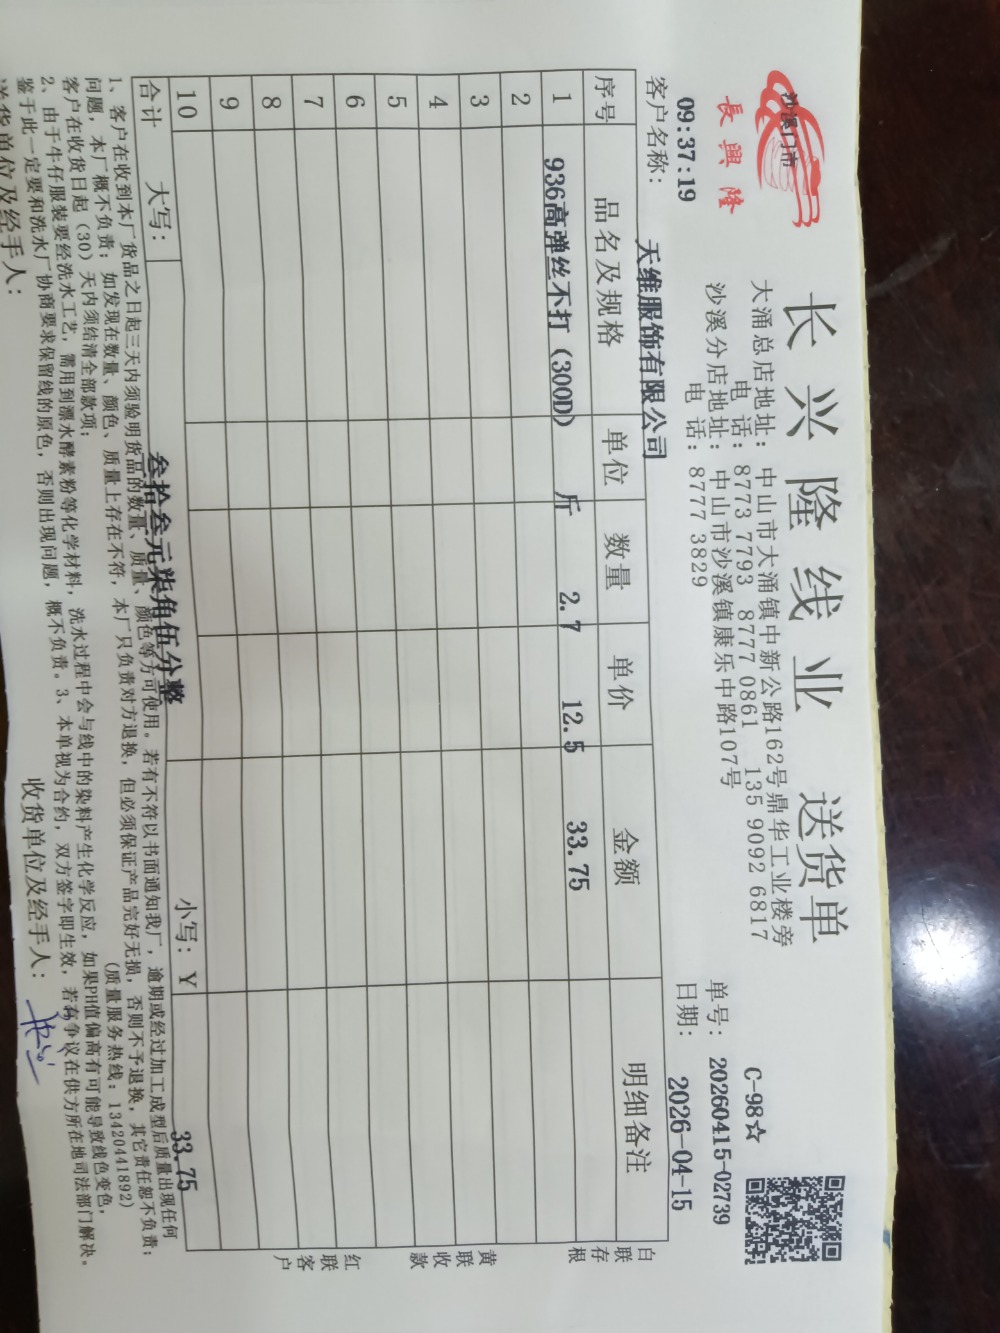 长兴隆线业 送货单
沙溪门市
長興隆
大涌总店地址：中山市大涌镇中新公路162号鼎华工业楼旁
电 话：8773 7793 8777 0861 135 9092 6817
沙溪分店地址：中山市沙溪镇康乐中路107号
电 话：8777 3829
C-98☆
单号：20260415-02739
09:37:19
日期：2026-04-15
客户名称：天维服饰有限公司
序号 品名及规格 单位 数量 单价 金额 明细备注
1 936高弹丝不打（300D） 斤 2.7 12.5 33.75
2
3
4
5
6
7
8
9
10
合计 大写：叁拾叁元柒角伍分整 小写：Y 33.75
白联存根
黄联收款
红联客户
1、客户在收到本厂货品之日起三天内须验明货品的数量、质量、颜色等方可使用。若有不符以书面通知我厂，逾期或经过加工成型后质量出现任何
问题，本厂概不负责；如发现在数量、颜色、质量上存在不符，本厂只负责对方退换，但必须保证产品完好无损，否则不予退换，其它责任恕不负责；
客户在收货日起（30）天内须结清全部款项；（质量服务热线：13420441892）
2、由于牛仔服装要经洗水工艺，需用到漂水酵素粉等化学材料，洗水过程中会与线中的染料产生化学反应，如果PH值偏高有可能导致线色变色，
鉴于此一定要和洗水厂协商要求保留线的原色，否则出现问题，概不负责。3、本单视为合约，双方签字即生效，若有争议在供方所在地司法部门解决。
送货单位及经手人： 收货单位及经手人：